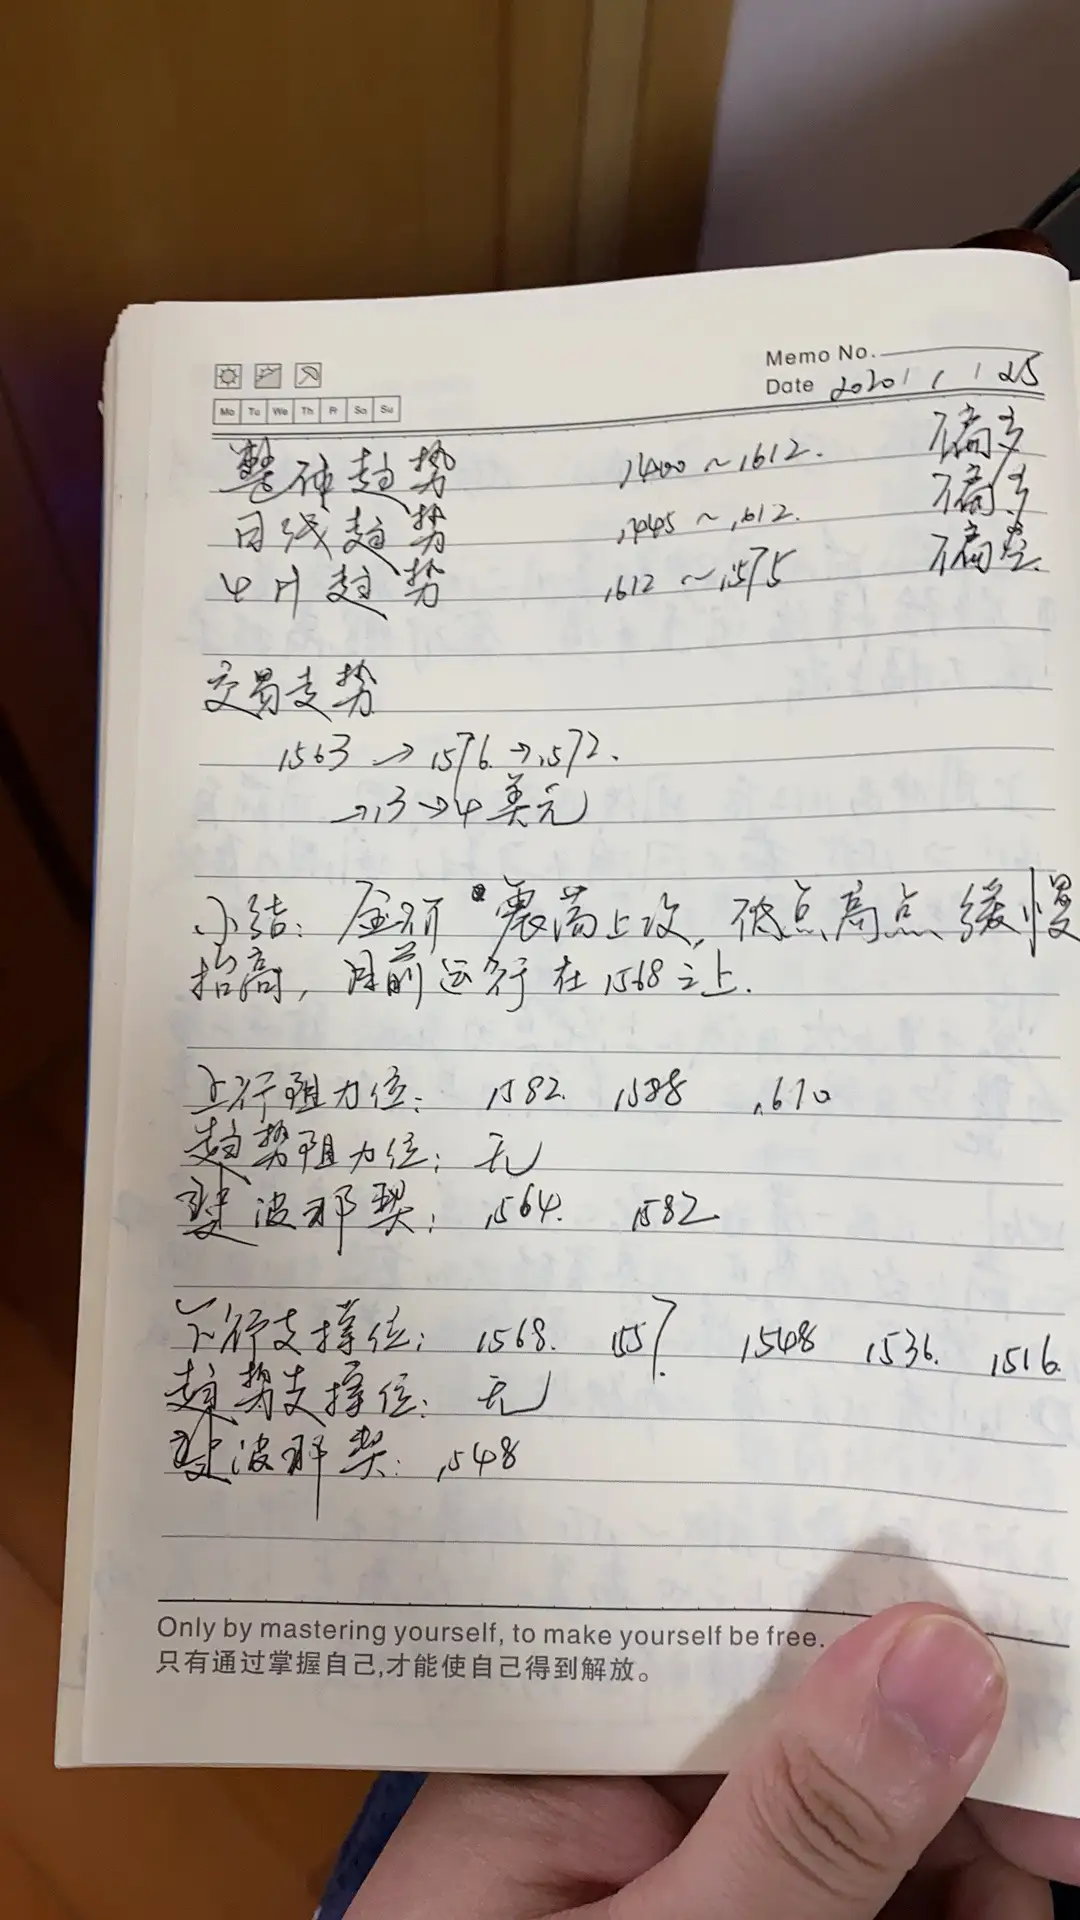 Memo No.
Date 2020 / 1 / 25
Mo Tu We Th Fr Sa Su
整体趋势 1400~1612. 偏多
日线趋势 1445~1612. 偏多
4H趋势 1612~1575 偏空.
交易走势
1563→1576.→1572.
→13→4美元
小结: 金价震荡上攻, 低点高点缓慢
抬高, 目前运行在1568之上.
上行阻力位: 1582. 1588 1610
趋势阻力位: 无
斐波那契: 1564. 1582.
下行支撑位: 1568. 1557. 1548 1536. 1516.
趋势支撑位: 无
斐波那契: 1548
Only by mastering yourself, to make yourself be free.
只有通过掌握自己,才能使自己得到解放。